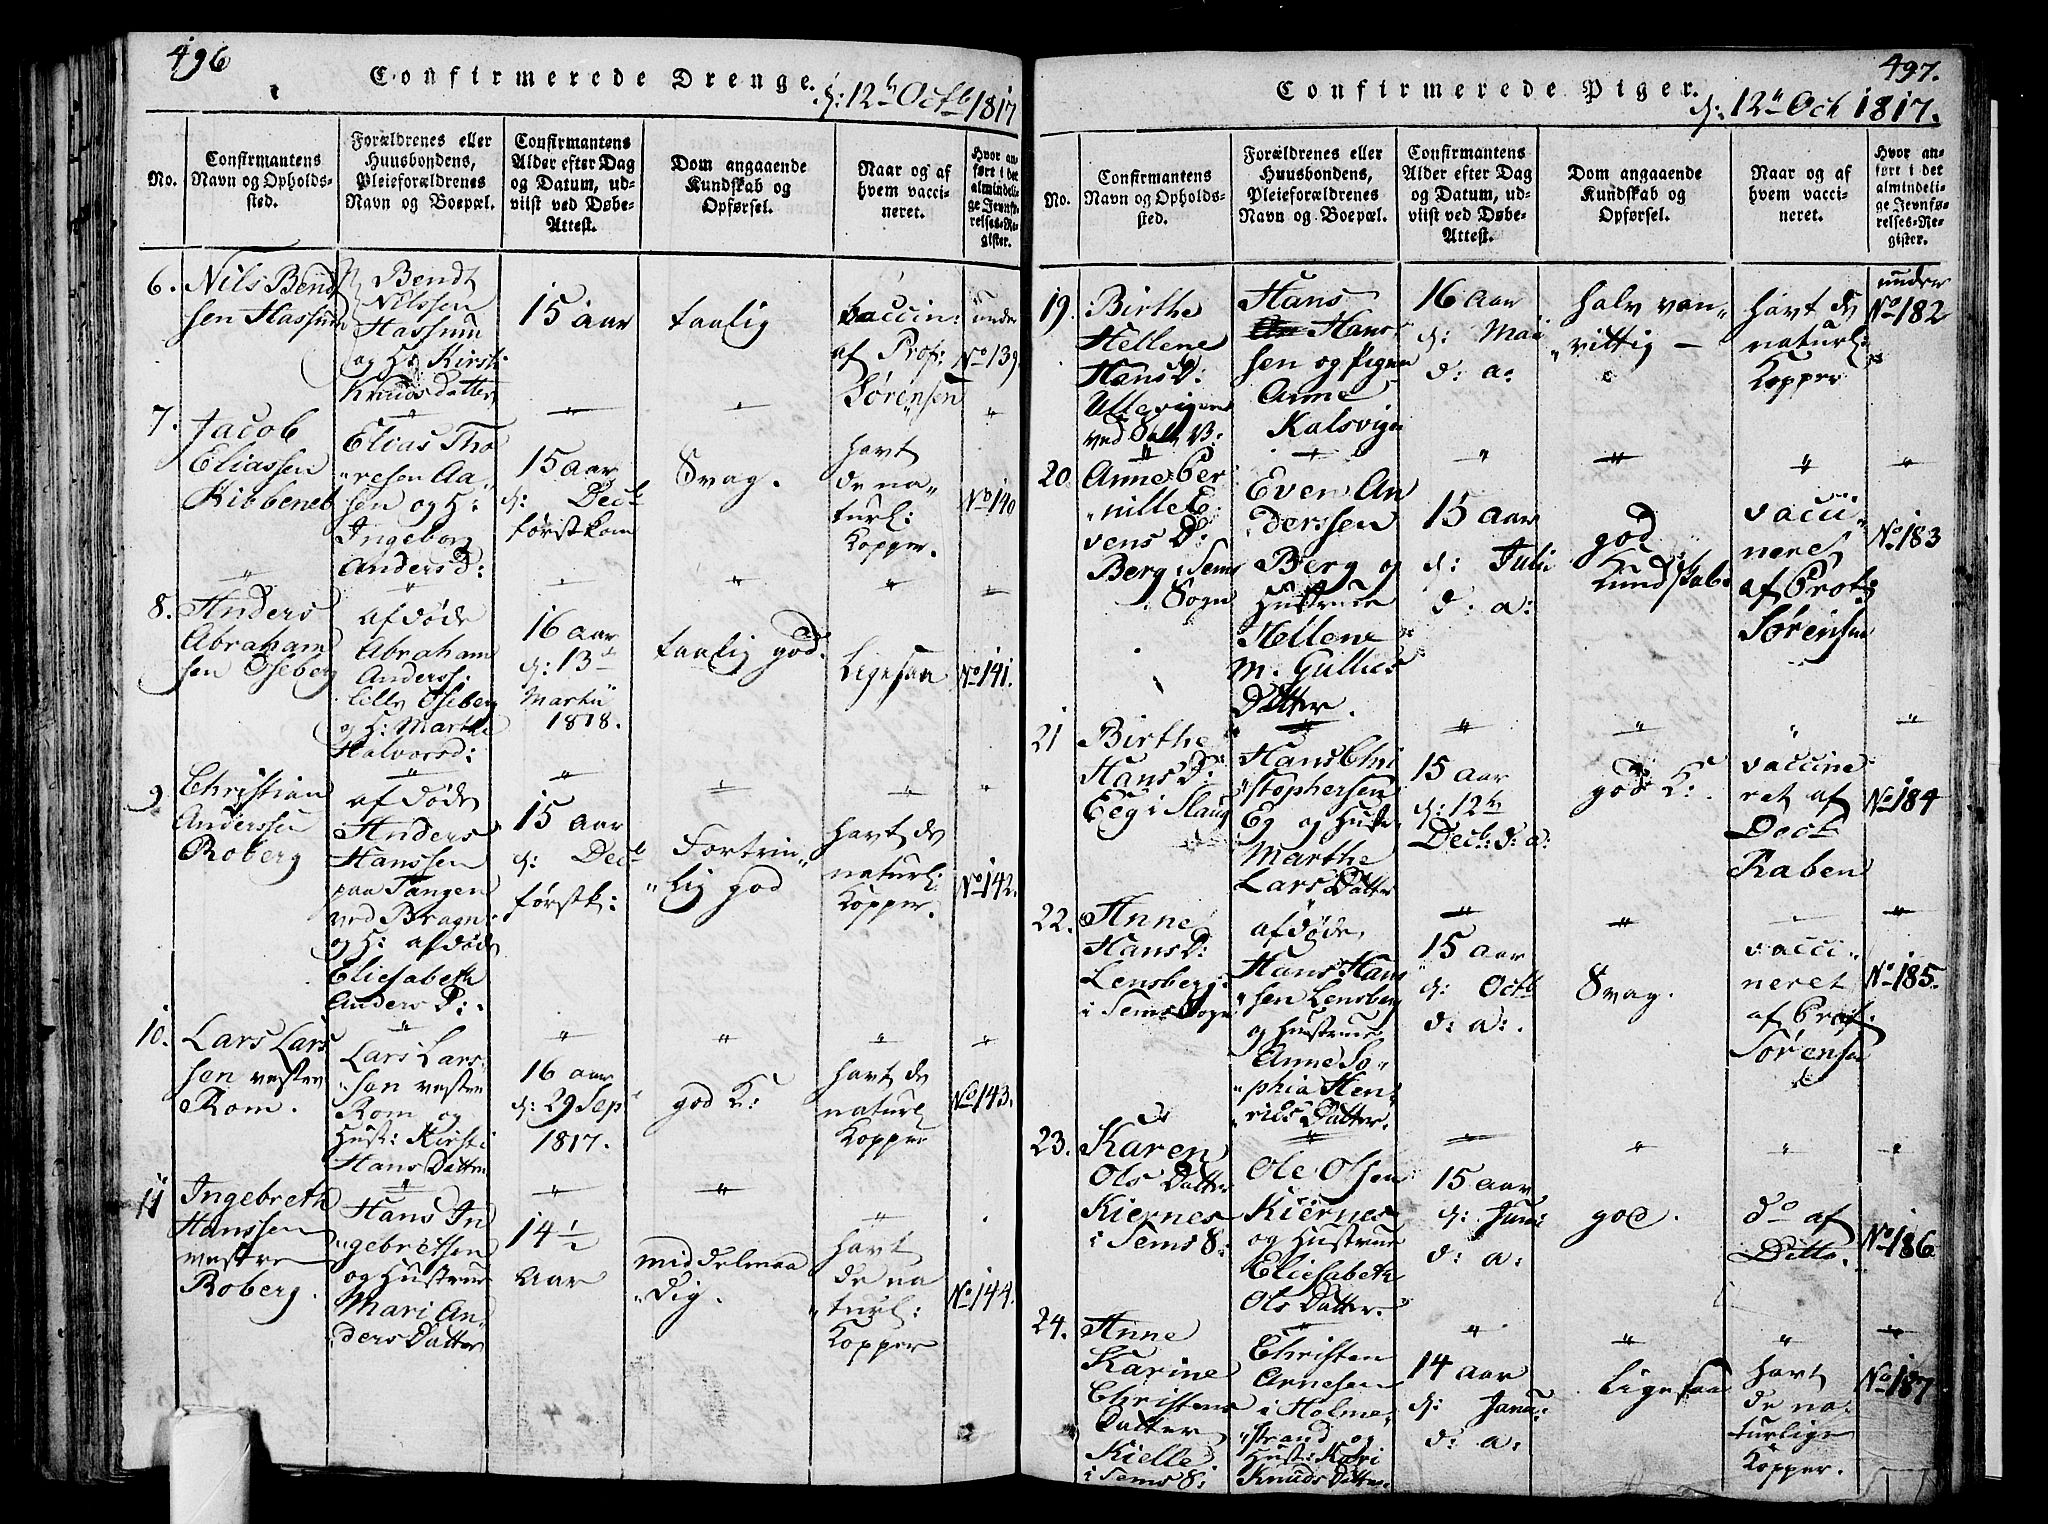 496
Confirmerede Drenge. d: 12te Octb 1817
No.
Confirmantens
Navn og Opholds-
sted.
Forældrenes eller
Huusbondens,
Pleieforældrenes
Navn og Boepæl.
Confirmantens
Alder efter Dag
og Datum, ud-
viist ved Døbe-
Attest.
Dom angaaende
Kundskab og
Opførsel.
Naar og af
hvem vacci-
neret.
Hvor an-
ført i det
almindeli-
ge Jevnfø-
relses-Re-
gister.
6.
Nils Bendt
sen Hassum
Bendt
Nilssen
Hassum
og H: Kirsti
Knuds datter
15 aar
taalig
vaccin:
af Prof:
Sørensen
under
No 139
7.
Jacob
Eliassen
Kibbenet
Elias Tho
resen Aa-
sen og H:
Ingeborg
Anders d:
15 aar
d: Decb
førstkom
Svag.
havt
de na-
turl:
Kopper.
No 140
8.
Anders
Abraham
sen Oseberg
afdøde
Abraham
Anderss:
lille Oseberg
og H: Marthe
Halvorsd:
16 aar
d: 13de
Martii
1818.
taalig god.
Ligesaa
No 141.
9
Christian
Anderssen
Roberg
afdøde
Anders
Hanssen
paa Tangen
ved Bragn:
og H: afdøde
Eliesabeth
Anders D:
15 aar
d: Decb
førstk:
Fortrin-
lig god
havt de
naturl:
Kopper.
No 142.
10.
Lars Lars
sen vestre
Rom.
Lars Lars-
sen vestre
Rom og
Hust: Kirsti
Hans Datter
16 aar
d: 29 Sept
1817.
god K:
havt de
naturl
Kopper
No 143.
11
Ingebreth
Hanssen
vestre
Roberg.
Hans In
gebretsen
og Hustrue
Mari An-
ders Datter
14 1/2
Aar
middelmaa
dig.
havt
de na
turl:
Kopper
No 144.
497.
Confirmerede Piger. d: 12te Oct 1817.
No.
Confirmantens
Navn og Opholds-
sted.
Forældrenes eller
Huusbondens,
Pleieforældrenes
Navn og Boepæl.
Confirmantens
Alder efter Dag
og Datum, ud-
viist ved Døbe-
Attest.
Dom angaaende
Kundskab og
Opførsel.
Naar og af
hvem vacci-
neret.
Hvor an-
ført i det
almindeli-
ge Jevnfø-
relses-Re-
gister.
19.
Birthe
Hellene
Hans D:
Ullevigen
ved
Hans
Hans
sen og Pigen
Anne
Kalsvigen
16 aar
d: Mai
d: a:
halv van-
vittig
havt de
naturl:
Kopper
under
No 182
20
Anne Per
nille E
vens D:
Berg i Sems
Sogn
Even An
derssen
Berg og
Hustrue
Hellene
M. Gullics
Datter.
15 aar
d: Julii
d. a:
god
Kundskab.
vacci
neret
af Prof:
Sørensen
No 183
21
Birthe
Hans D:
Eeg i Slaug
Hans Chri
stophersen
Eg og Hustr:
Marthe
Lars Datter
15 aar
d: 12te
Decb: d: a:
god K:
vaccine
ret af
Doct
Raben
No 184
22.
Anne
Hans D:
Lensberg
i Sems Sogn
afdøde
Hans Hans
sen Lensberg
og Hustrue
Anne So-
phia Hen-
rics Datter.
15 aar
d: Octb
d: a:.
Svag.
vacci-
neret
af Prof.
Sørensen
No 185.
23.
Karen
Ols Datter
Kiernes
i Sems S:
Ole Olsen
Kiernes
og Hustrue
Eliesabeth
Ols Datter.
15 aar
d: Juni
d: a:
god.
do af
Ditto.
No 186
24.
Anne
Karine
Christens
Datter
Kielle
i Sems S:
Christen
Arnesen
i Holme-
strand og
Hust: Kari
Knuds Datter
14 aar
d: Janu:
d: a:
Ligesaa
havt
de na-
turlige
Kopper.
No 187